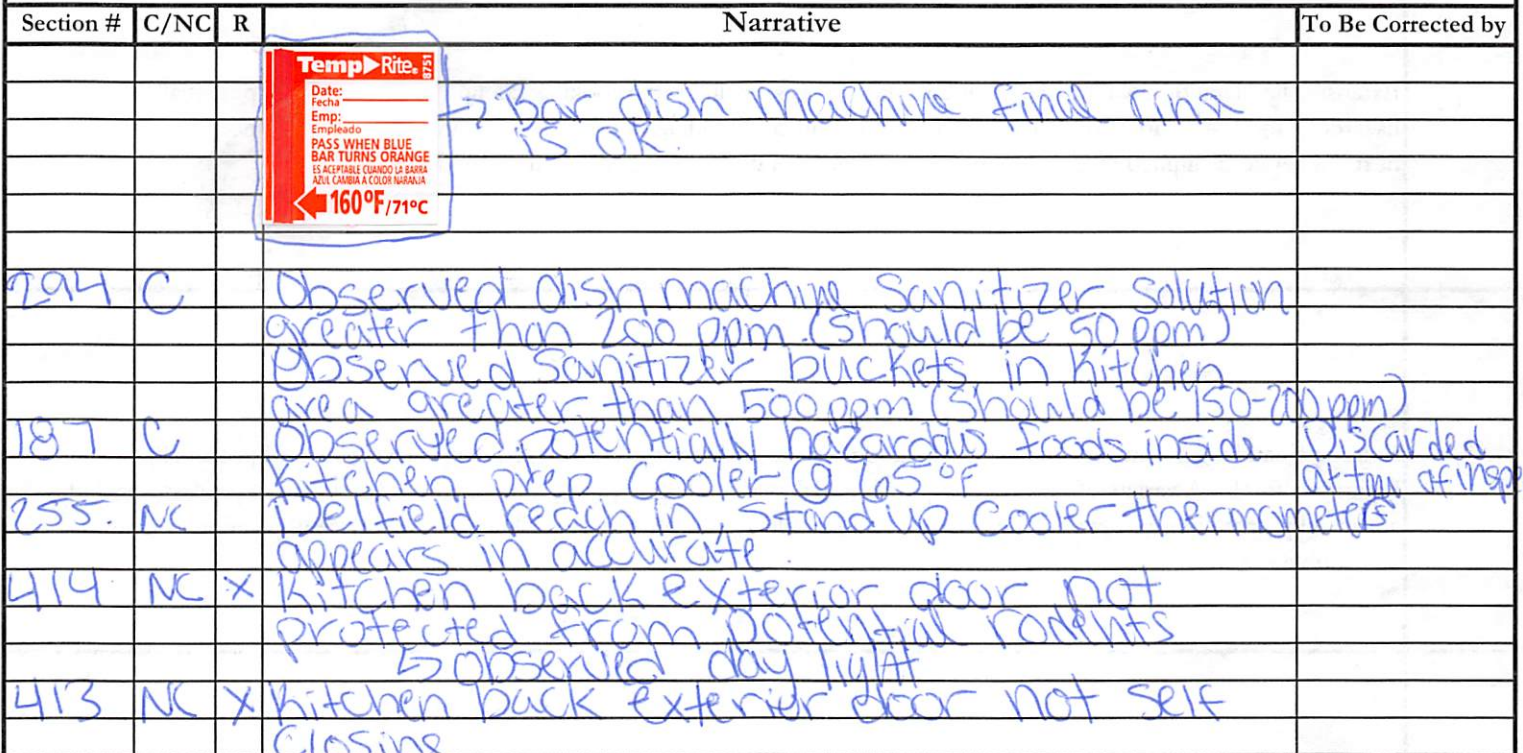 Section # C/NC R Narrative To Be Corrected by
Temp Rite® 8751
Date:
Fecha
Emp:
Empleado
PASS WHEN BLUE
BAR TURNS ORANGE
ES ACEPTABLE CUANDO LA BARRA
AZUL CAMBIA A COLOR NARANJA
160°F/71°C
→ Bar dish machine final rins
is OK.
294 C Observed dish machine Sanitizer solution
greater than 200 ppm. (should be 50 ppm)
Observed Sanitizer buckets in kitchen
area greater than 500 ppm (should be 150-200 ppm)
187 C Observed potentially hazardous foods inside Discarded
Kitchen prep cooler @ 65°F at time of inspe
255. NC Delfield reach in, stand up cooler thermometers
appears in accurate.
414 NC X Kitchen back exterior door not
protected from potential rodents
↳ observed day light
413 NC X Kitchen back exterior door not self
closing